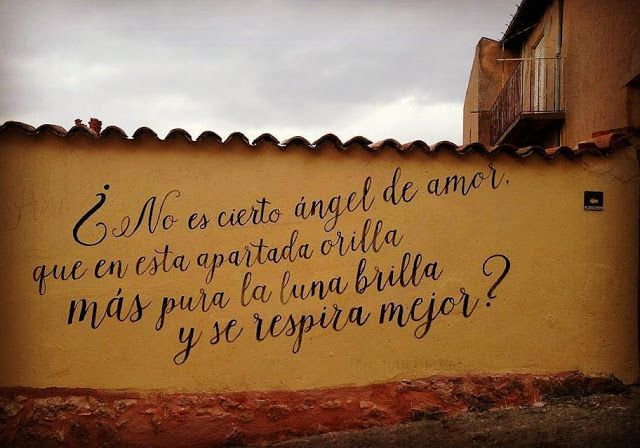 ¿No es cierto ángel de amor,
que en esta apartada orilla
más pura la luna brilla
y se respira mejor?